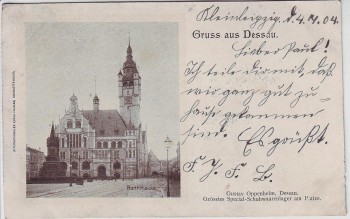 Kleinleipzig, d. 4. 7. 04
Gruss aus Dessau.
Lieber Paul!
Ich teile dir mit, daß
wir ganz gut zu-
hause gekommen
sind. Es grüßt
F. F. F. B.
Rathhaus.
Gustav Oppenheim, Dessau.
Grösstes Special-Schuhwarenlager am Platze.